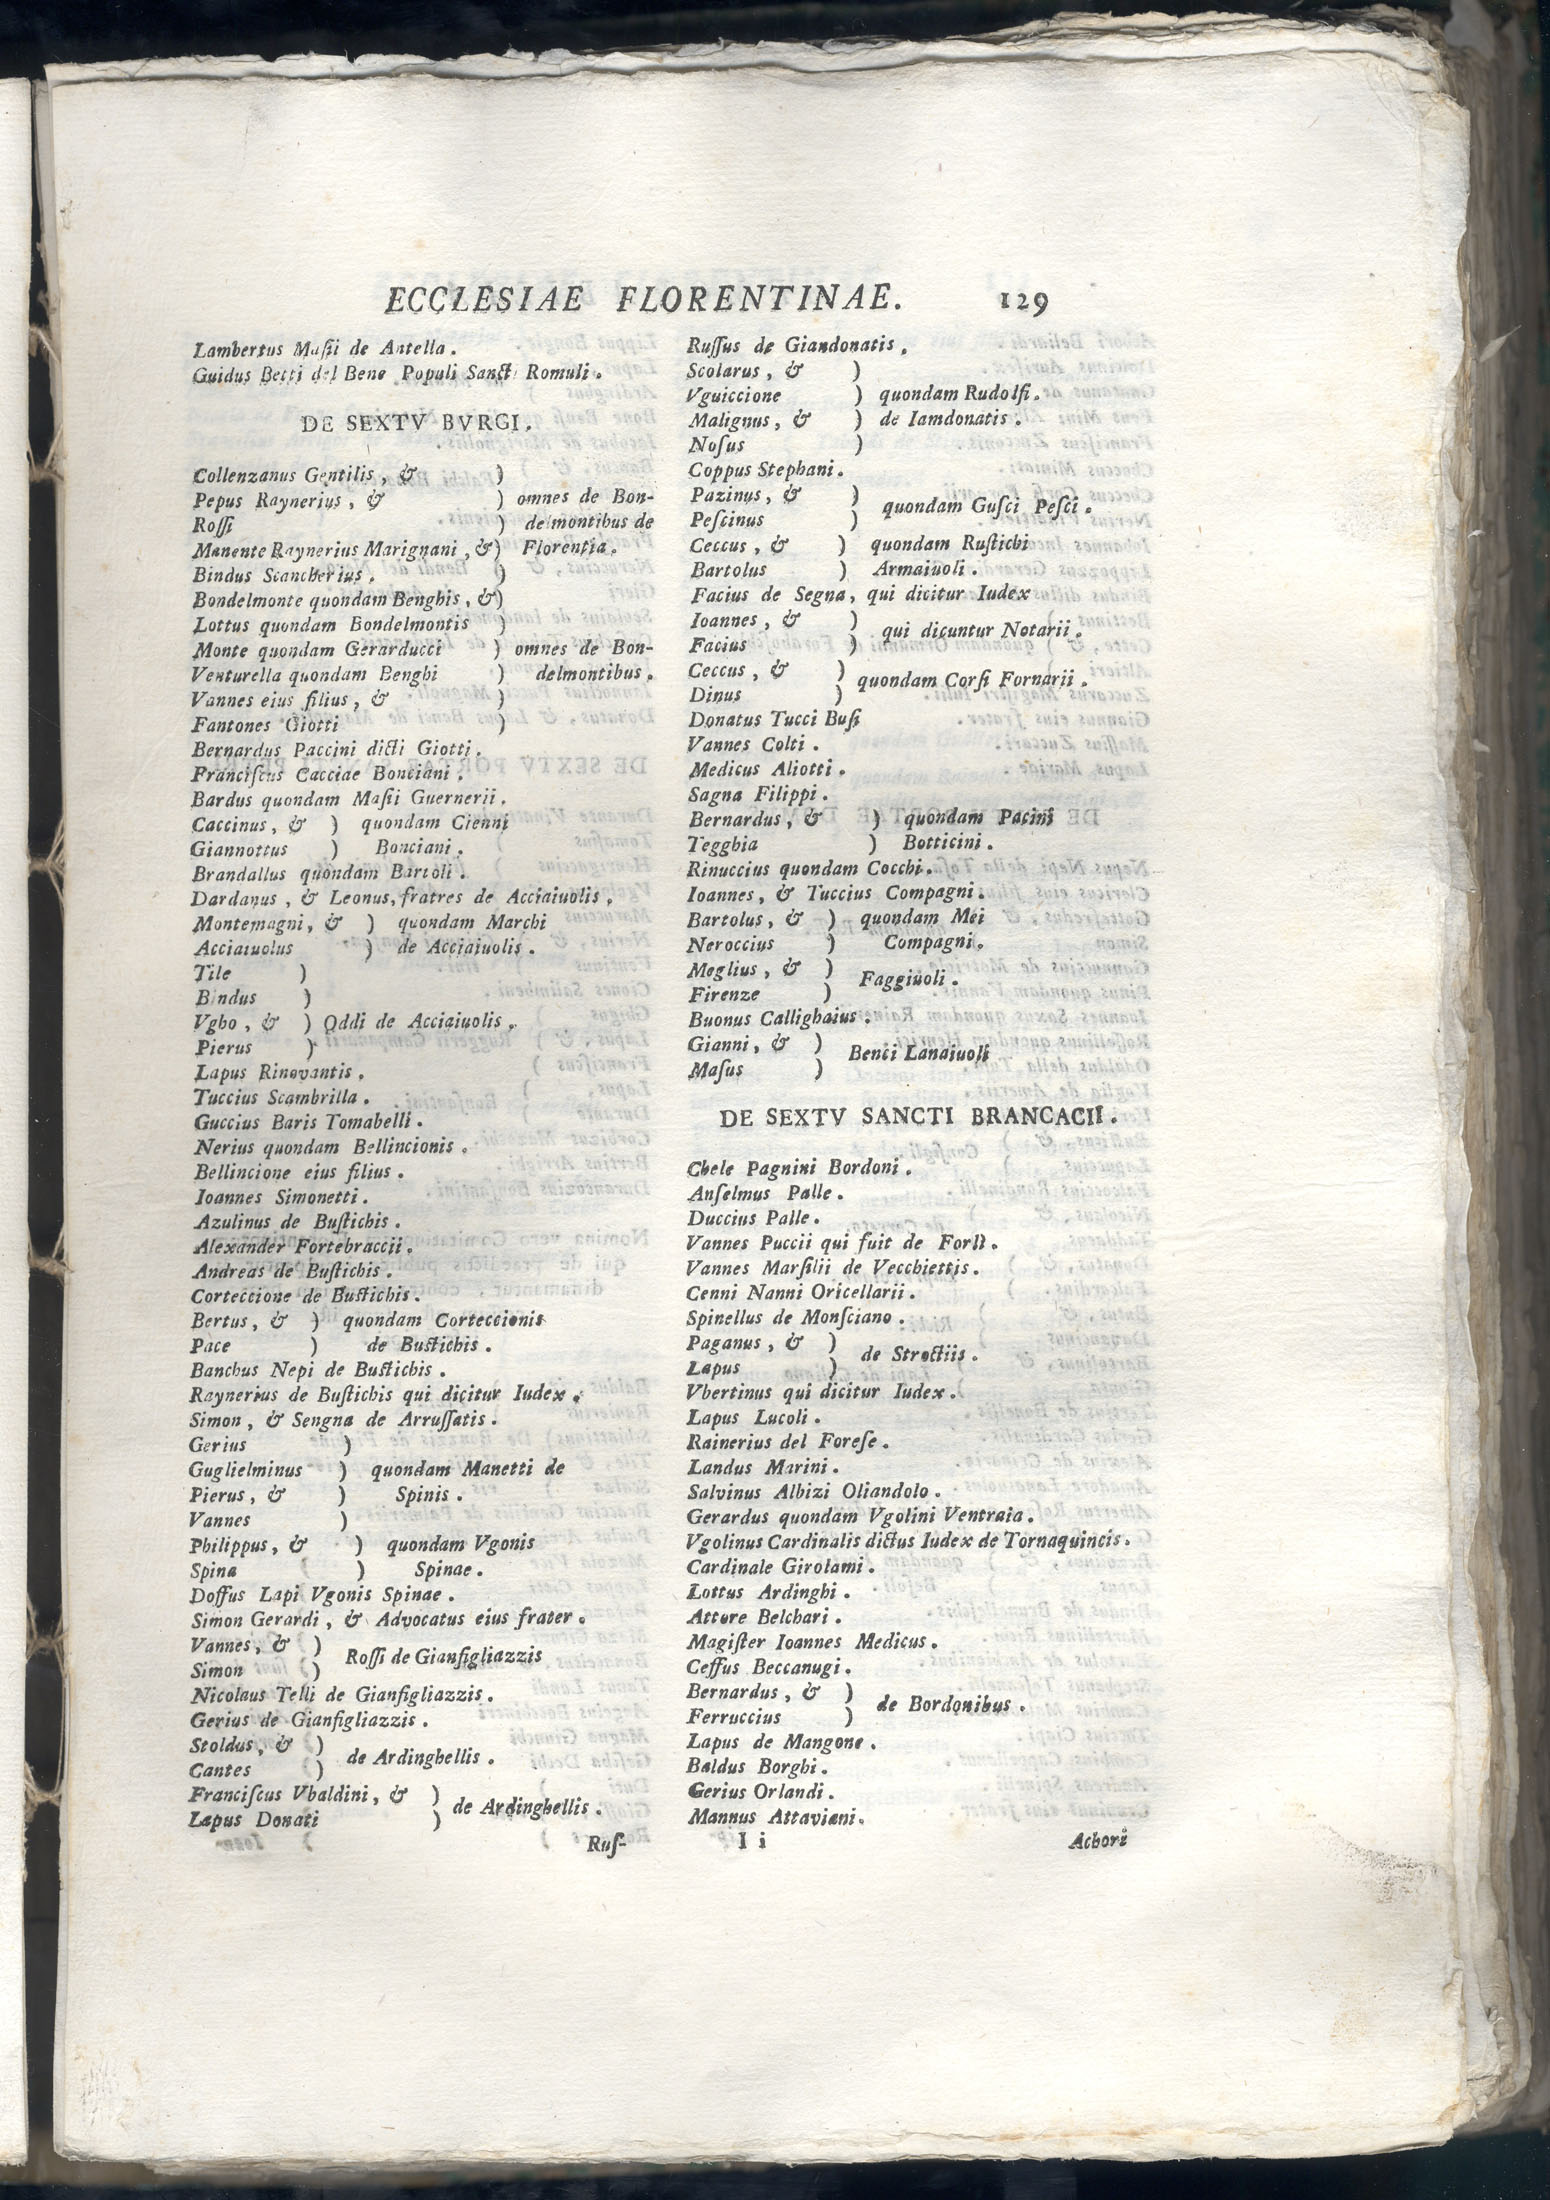 ECCLESIAE FLORENTINAE. 129
Lambertus Maſii de Antella.
Guidus Betti del Bene Populi Sancti Romuli.
DE SEXTV BVRGI.
Collenzanus Gentilis, & )
Pepus Raynerius, & ) omnes de Bon-
Roſſi ) delmontibus de
Manente Raynerius Marignani, &) Florentia.
Bindus Scancherius. )
Bondelmonte quondam Benghis, &)
Lottus quondam Bondelmontis )
Monte quondam Gerarducci ) omnes de Bon-
Venturella quondam Benghi ) delmontibus.
Vannes eius filius, & )
Fantones Giotti )
Bernardus Paccini dicti Giotti.
Franciſcus Cacciae Bonciani.
Bardus quondam Maſii Guernerii.
Caccinus, & ) quondam Cienni
Giannottus ) Bonciani.
Brandallus quondam Bartoli.
Dardanus, & Leonus, fratres de Acciaiuolis.
Montemagni, & ) quondam Marchi
Acciaiuolus ) de Acciaiuolis.
Tile )
Bindus )
Vgho, & ) Oddi de Acciaiuolis.
Pierus )
Lapus Rinovantis.
Tuccius Scambrilla.
Guccius Baris Tomabelli.
Nerius quondam Bellincionis.
Bellincione eius filius.
Ioannes Simonetti.
Azulinus de Buſtichis.
Alexander Fortebraccii.
Andreas de Buſtichis.
Corteccione de Buſtichis.
Bertus, & ) quondam Corteccionis
Pace ) de Buſtichis.
Banchus Nepi de Buſtichis.
Raynerius de Buſtichis qui dicitur Iudex.
Simon, & Sengna de Arruſſatis.
Gerius )
Guglielminus ) quondam Manetti de
Pierus, & ) Spinis.
Vannes )
Philippus, & ) quondam Vgonis
Spina ) Spinae.
Doffus Lapi Vgonis Spinae.
Simon Gerardi, & Advocatus eius frater.
Vannes, & )
Simon ) Roſſi de Gianfigliazzis
Nicolaus Telli de Gianfigliazzis.
Gerius de Gianfigliazzis.
Stoldus, & )
Cantes ) de Ardinghellis.
Franciſcus Vbaldini, & )
Lapus Donati ) de Ardinghellis.
Ruſ-
Ruſſus de Giandonatis.
Scolarus, & )
Vguiccione ) quondam Rudolfi.
Malignus, & ) de Iamdonatis.
Noſus )
Coppus Stephani.
Pazinus, & )
Peſcinus ) quondam Guſci Peſci.
Ceccus, & ) quondam Ruſtichi
Bartolus ) Armaiuoli.
Facius de Segna, qui dicitur Iudex
Ioannes, & )
Facius ) qui dicuntur Notarii.
Ceccus, & )
Dinus ) quondam Corſi Fornarii.
Donatus Tucci Buſi
Vannes Colti.
Medicus Aliotti.
Sagna Filippi.
Bernardus, & ) quondam Pacini
Tegghia ) Botticini.
Rinuccius quondam Cocchi.
Ioannes, & Tuccius Compagni.
Bartolus, & ) quondam Mei
Neroccius ) Compagni.
Meglius, & )
Firenze ) Faggiuoli.
Buonus Callighaius.
Gianni, & )
Maſus ) Benci Lanaiuoli
DE SEXTV SANCTI BRANCACII.
Chele Pagnini Bordoni.
Anſelmus Palle.
Duccius Palle.
Vannes Puccii qui fuit de Forlì.
Vannes Marſilii de Vecchiettis.
Cenni Nanni Oricellarii.
Spinellus de Monſciano.
Paganus, & )
Lapus ) de Stroctiis.
Vbertinus qui dicitur Iudex.
Lapus Lucoli.
Rainerius del Foreſe.
Landus Marini.
Salvinus Albizi Oliandolo.
Gerardus quondam Vgolini Ventraia.
Vgolinus Cardinalis dictus Iudex de Tornaquincis.
Cardinale Girolami.
Lottus Ardinghi.
Attore Belchari.
Magiſter Ioannes Medicus.
Ceffus Beccanugi.
Bernardus, & )
Ferruccius ) de Bordonibus.
Lapus de Mangone.
Baldus Borghi.
Gerius Orlandi.
Mannus Attaviani.
I i Achori